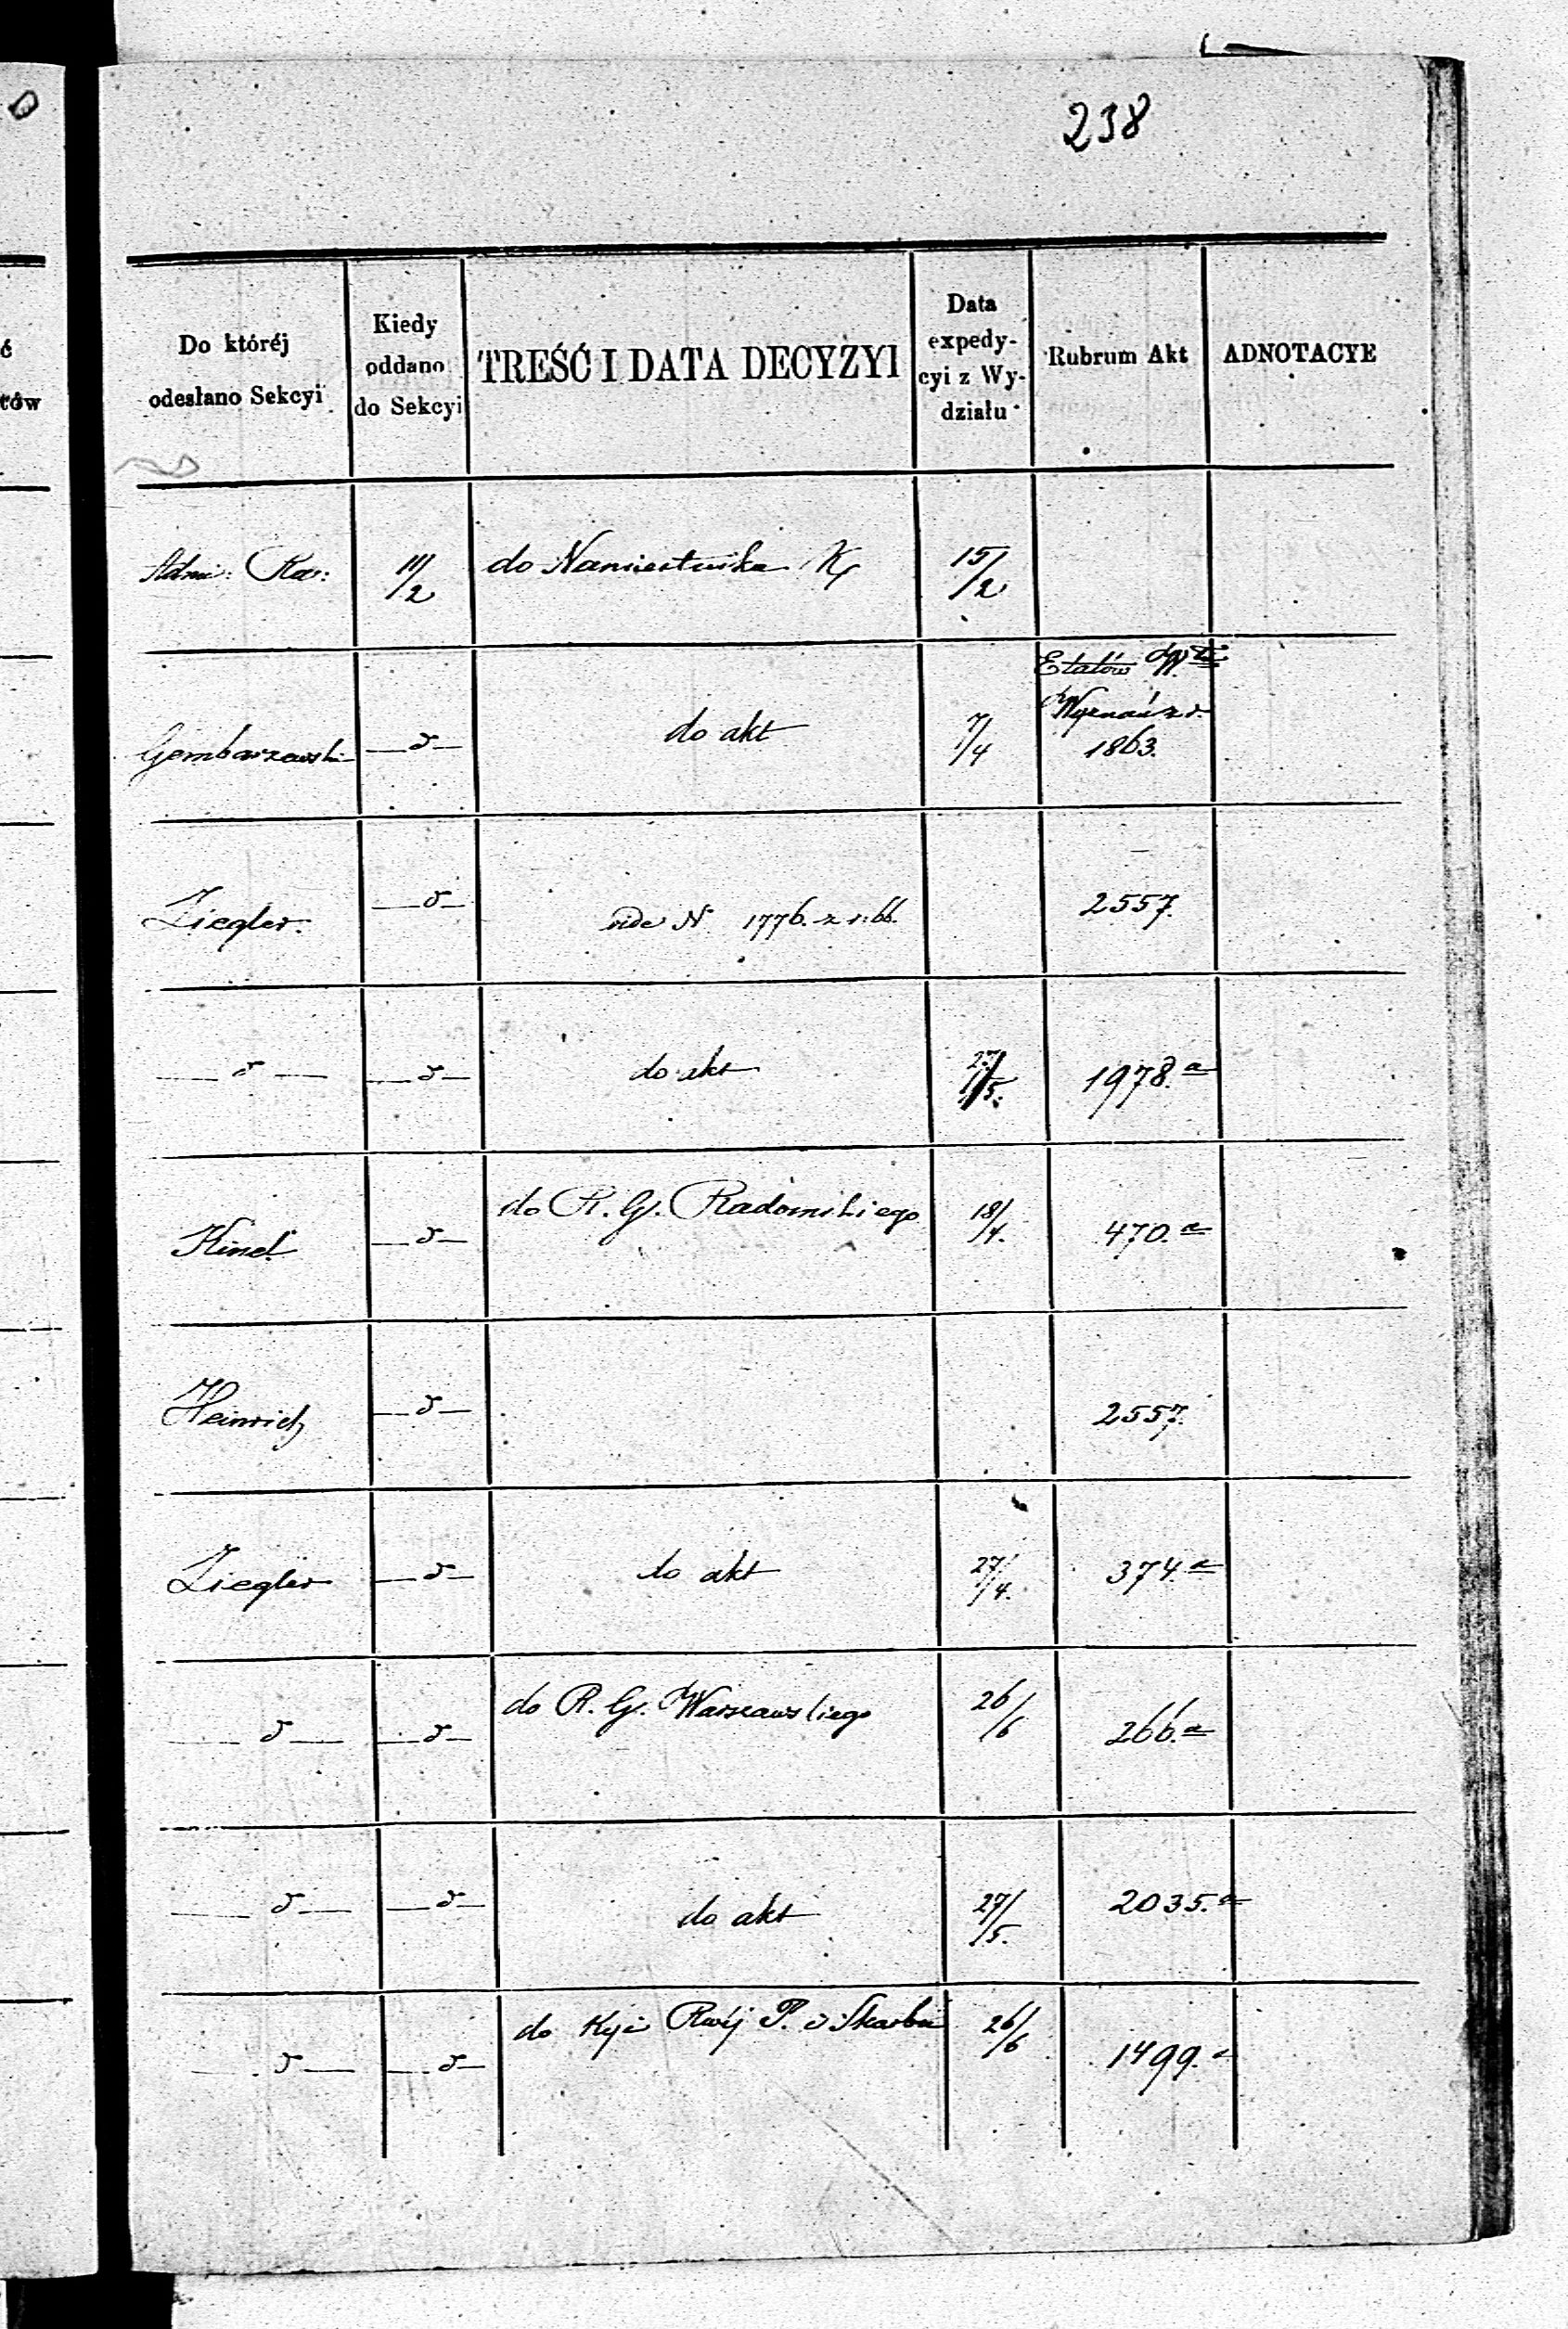 238
Do któréj
odesłano Sekcyi
Kiedy
oddano
do Sekcyi
TREŚĆ I DATA DECYZYI
Data
expedy-
cyi z Wy-
działu
Rubrum Akt
ADNOTACYE
ć
tów
Admi: Ka: 11/2 do Namiestnika 15/2
Etatów
1863.
Gembarzewski — d — do akt 7/4
Ziegler. — d — vide N 1776. z r. 66. 2557.
— d — — d — do akt 27/5. 1978.a
Kind — d — do R. G. Radomskiego 18/4. 470.a
Heinrich — d — 2557.
Ziegler — d — do akt 27/4. 374.a
— d — — d — do R. G. Warszawskiego 26/6 266.a
— d — — d — do akt 27/5. 2035.a
— d — — d — do Kyi Rwéj P. i Skarbu 26/6 1499.a